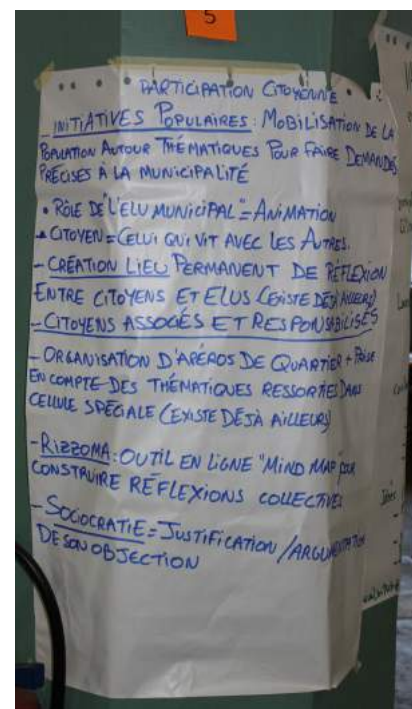 5
PARTICIPATION CITOYENNE
- INITIATIVES POPULAIRES : MOBILISATION DE LA
POPULATION AUTOUR THÉMATIQUES POUR FAIRE DEMANDES
PRÉCISES À LA MUNICIPALITÉ
• RÔLE DE "L'ELU MUNICIPAL" = ANIMATION
• CITOYEN = CELUI QUI VIT AVEC LES AUTRES.
- CRÉATION LIEU PERMANENT DE RÉFLEXION
ENTRE CITOYENS ET ELUS (EXISTE DÉJÀ AILLEURS)
- CITOYENS ASSOCIÉS ET RESPONSABILISÉS
- ORGANISATION D'APÉROS DE QUARTIER + PRISE
EN COMPTE DES THÉMATIQUES RESSORTIES DANS
CELLULE SPÉCIALE (EXISTE DÉJÀ AILLEURS)
- RIZZOMA : OUTIL EN LIGNE "MIND MAP" POUR
CONSTRUIRE RÉFLEXIONS COLLECTIVES
- SOCIOCRATIE = JUSTIFICATION / ARGUMENTATION
DE SON OBJECTION